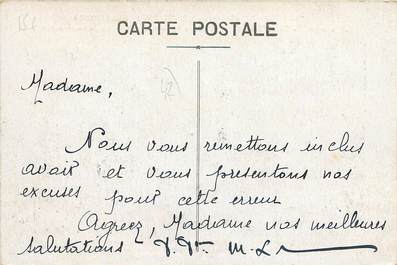 CARTE POSTALE
Madame,
Nous vous remettons inclus
avoir et vous presentons nos
excuses pour cette erreur
Agreez, Madame nos meilleures
salutations